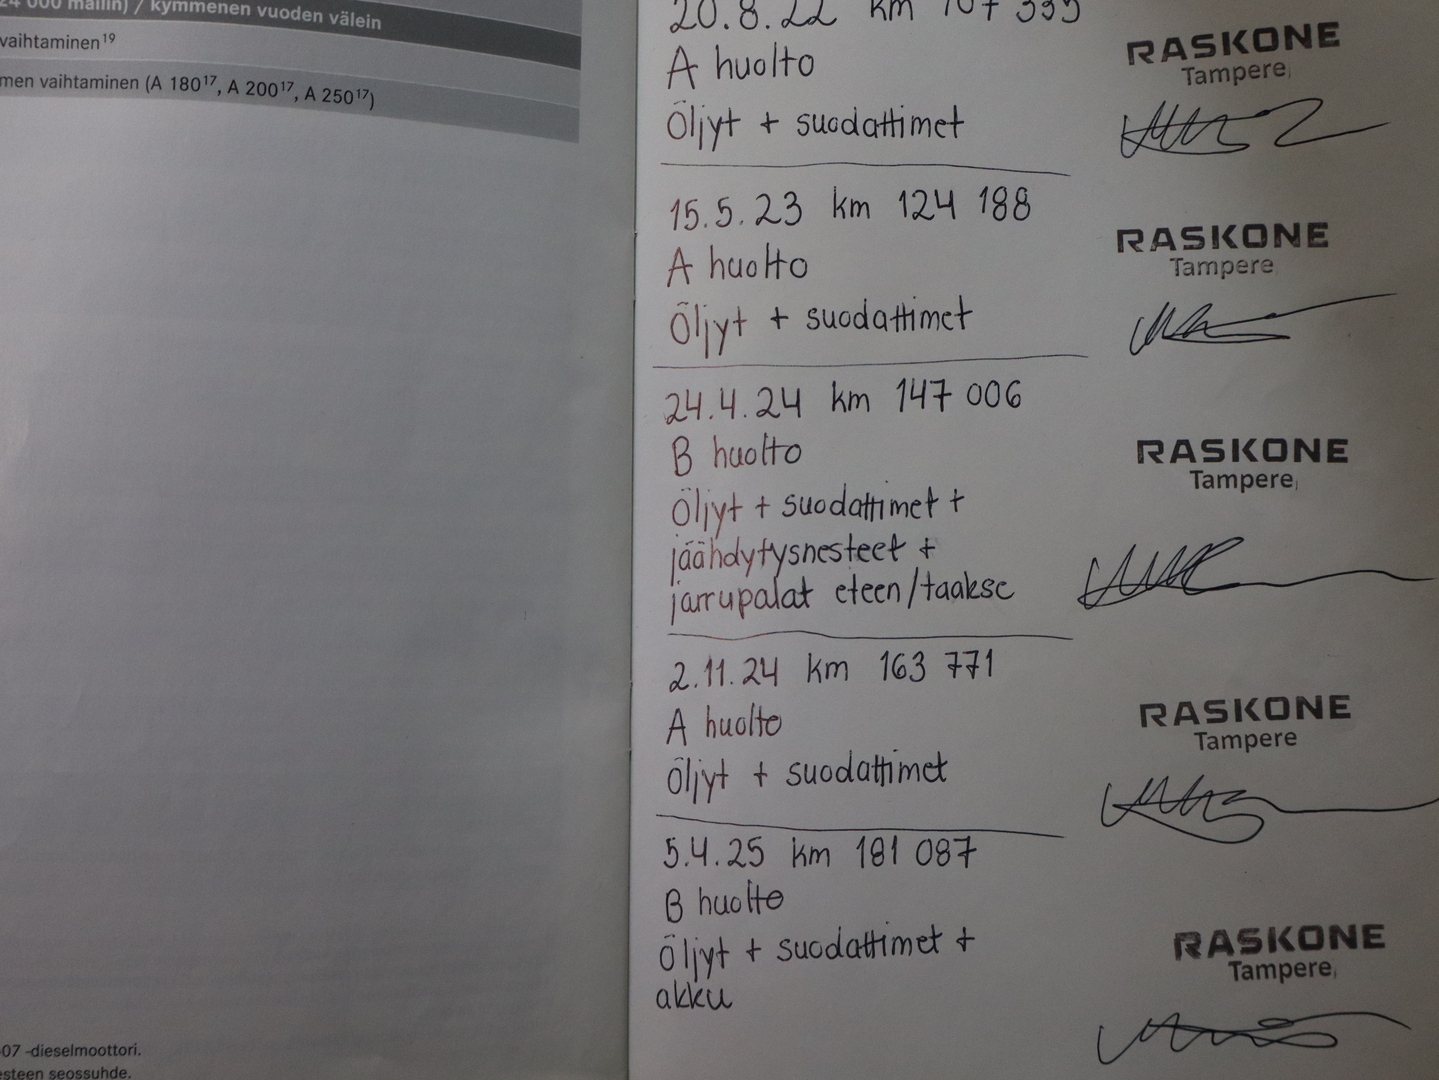 24 000 mallin) / kymmenen vuoden välein
vaihtaminen19
men vaihtaminen (A 18017, A 20017, A 25017)
07 -dieselmoottori.
esteen seossuhde.
20.8.22 km
A huolto
Öljyt + suodattimet
RASKONE
Tampere
15.5.23 km 124 188
A huolto
Öljyt + suodattimet
RASKONE
Tampere
24.4.24 km 147 006
B huolto
Öljyt + suodattimet +
jäähdytysnesteet +
jarrupalat eteen/taakse
RASKONE
Tampere
2.11.24 km 163 771
A huolto
Öljyt + suodattimet
RASKONE
Tampere
5.4.25 km 181 087
B huolto
Öljyt + suodattimet +
akku
RASKONE
Tampere